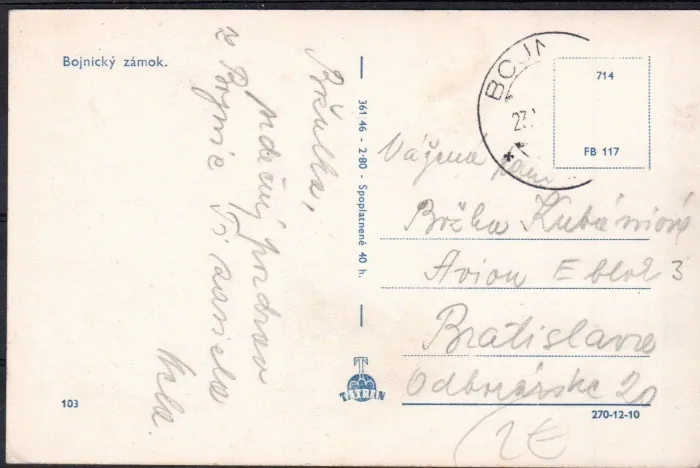 Bojnický zámok.
Boženka,
srdečný pozdrav
z Bojnic Ti
zasiela
Mela.
361 46 - 2·80 - Spoplatnené 40 h.
TATRAN
BOJN
23.
714
FB 117
Vážená pani
Božka Kubániová
Avion E blok 3
Bratislava
Odborárske 20
103
270-12-10